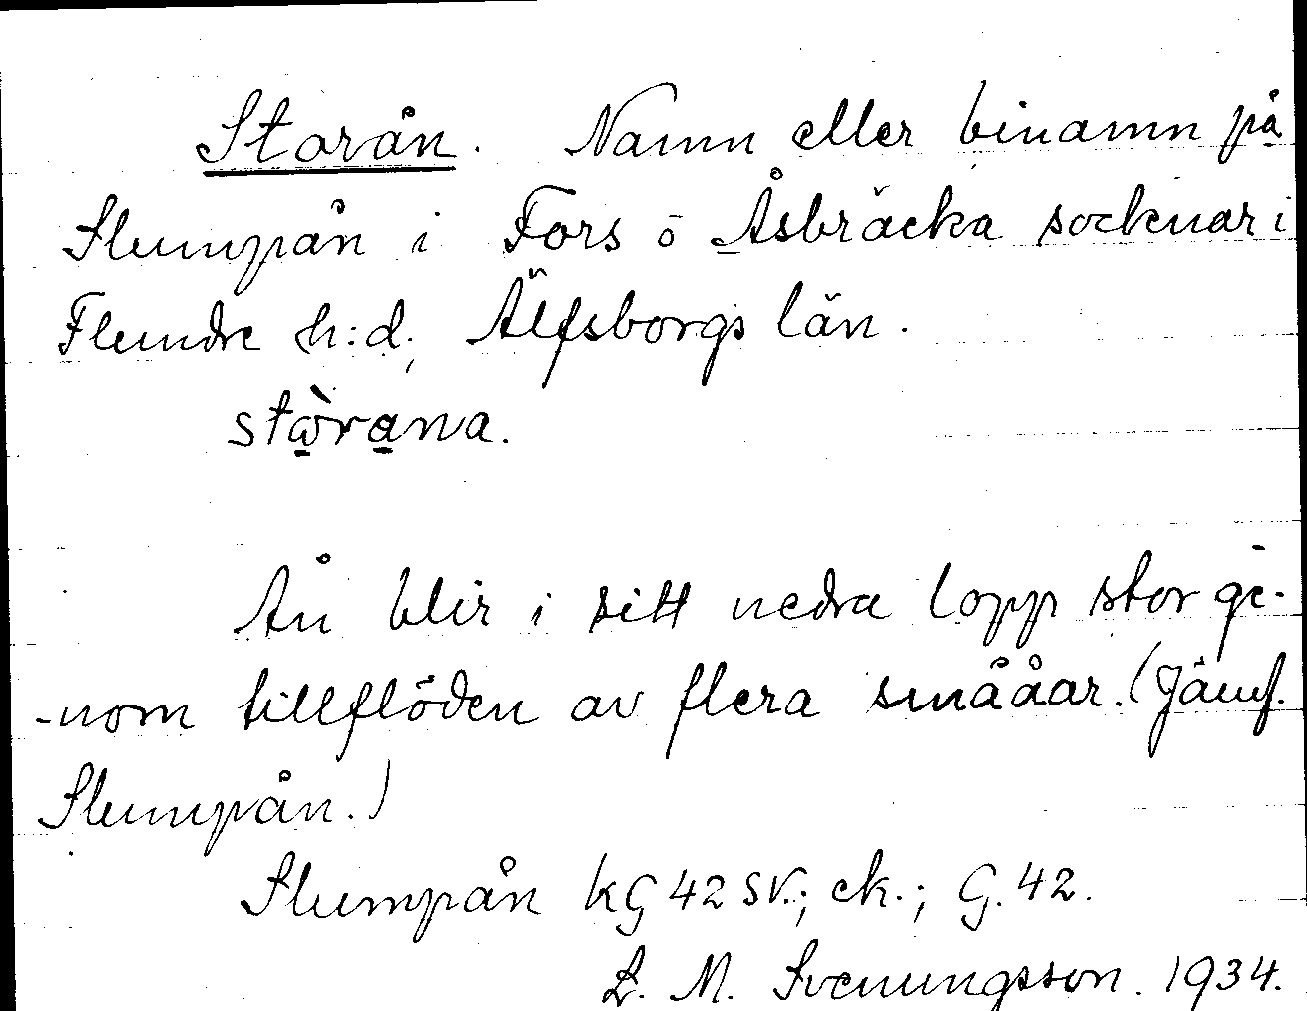 Storån. Namn eller binamn på
Slumpån i Fors o Åsbräcka socknar i
Flundre h:d, Älfsborgs län.
stòrana.
Ån blir i sitt nedra lopp stor ge-
-nom tillflöden av flera smååar. (Jämf.
Slumpån.)
Slumpån kG 42 SV.; ek.; G. 42.
L. M. Svenungsson. 1934.